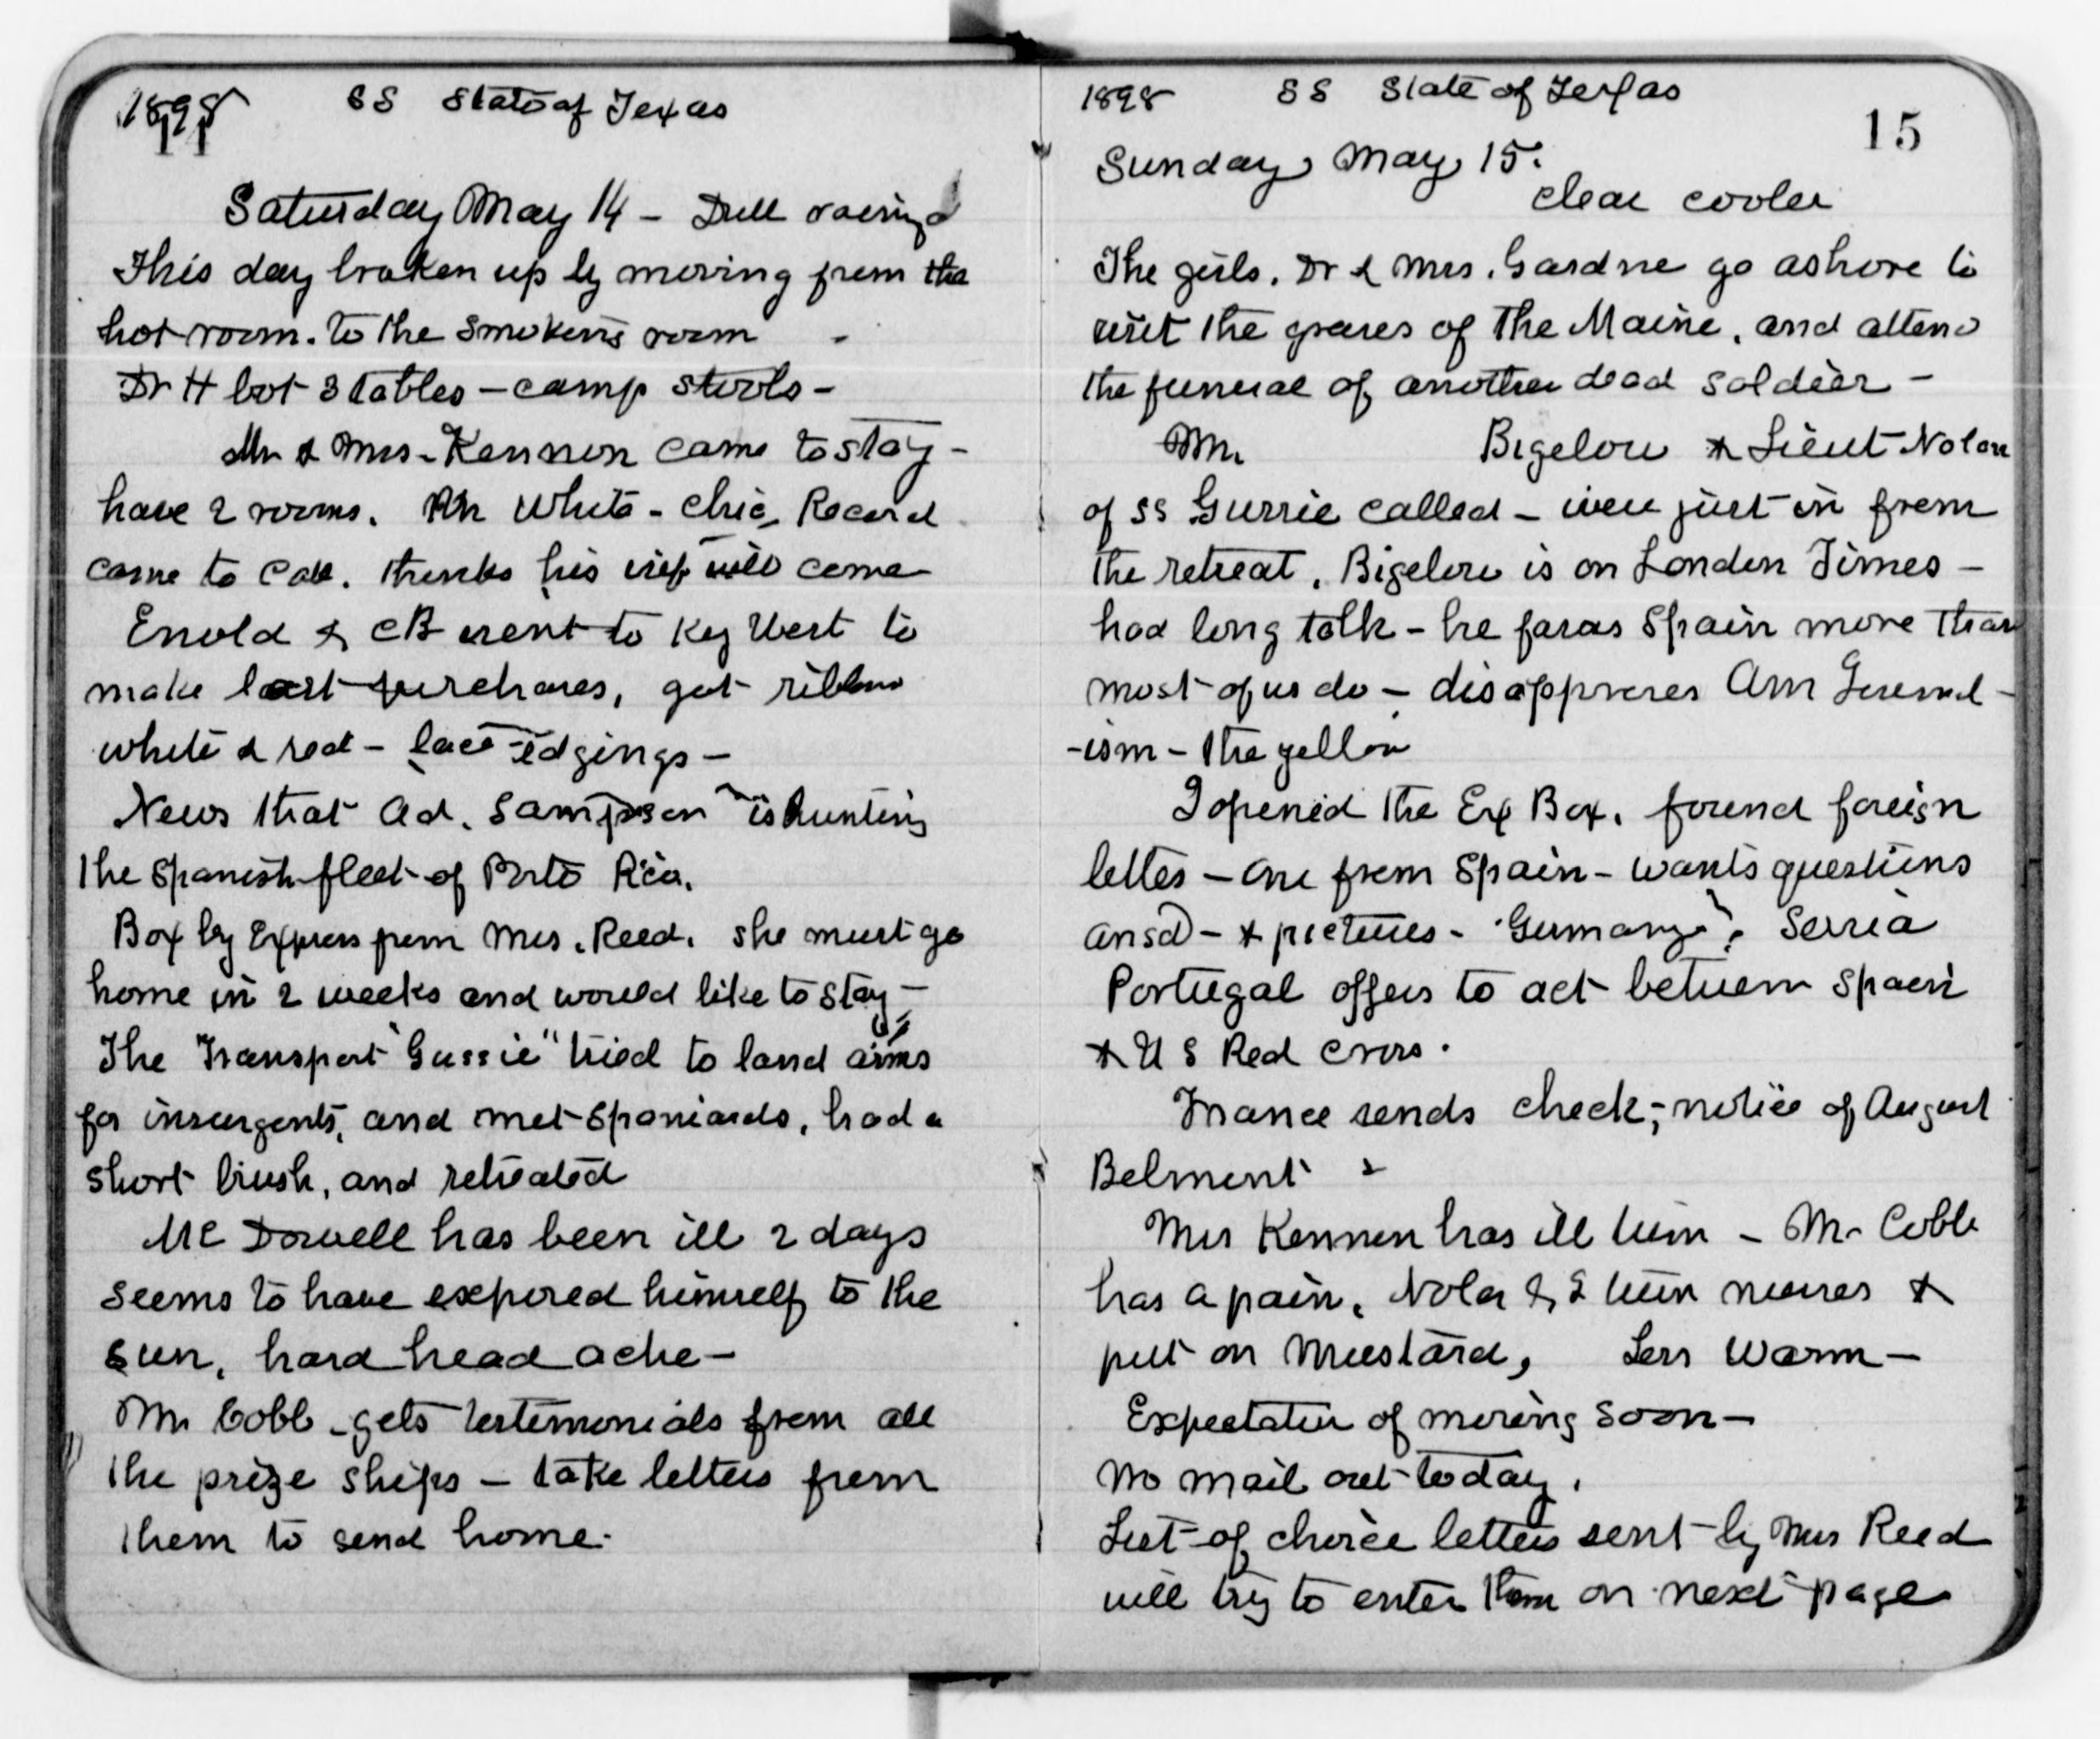 1898
11
SS State of Texas
Saturday May 14 - Dull rainy
This day broken up by moving from the
hot room. to the smokers room -
Dr H bot 3 tables - camp stools -
Mr & Mrs - Kennen came to stay -
have 2 rooms. Mr White - Chic, Record
came to call. thinks his wife will come
Enold & CB went to Key West to
make last purchases, got ribbons
white & red - lace edgings -
News that Ad. Sampson is hunting
the Spanish fleet of Porto Rico.
Box by Express from Mrs. Reed. she must go
home in 2 weeks and would like to stay -
The Transport "Gussie" tried to land arms
for insurgents, and met Spaniards, had a
short brush, and retreated
Mc Dowell has been ill 2 days
seems to have exposed himself to the
sun, hard head ache -
Mr Cobb - gets testimonials from all
the prize ships - take letters from
them to send home.
1898 SS State of Texas
15
Sunday May 15.
clear cooler
The girls. Dr & Mrs. Gardne go ashore to
visit the graves of the Maine, and attend
the funeral of another dead soldier -
Mr. Bigelow & Lieut Nolan
of ss Gussie called - were just in from
the retreat, Bigelow is on London Times -
had long talk - he favors Spain more than
most of us do - disapproves Am Journal -
-ism - the yellow
I opened the Ex Box. found foreign
letters - one from Spain - wants questions
ansd - & pictures - Germany, Servia
Portugal offers to act between Spain
& U S Red Cross.
France sends check, - notice of August
Belmont
Mrs Kennen has ill turn - Mr Cobb
has a pain, turn nurses &
put on Mustard, Less Warm -
Expectation of moving soon -
No mail out today.
List of choice letters sent by Mrs Reed
will try to enter them on next page